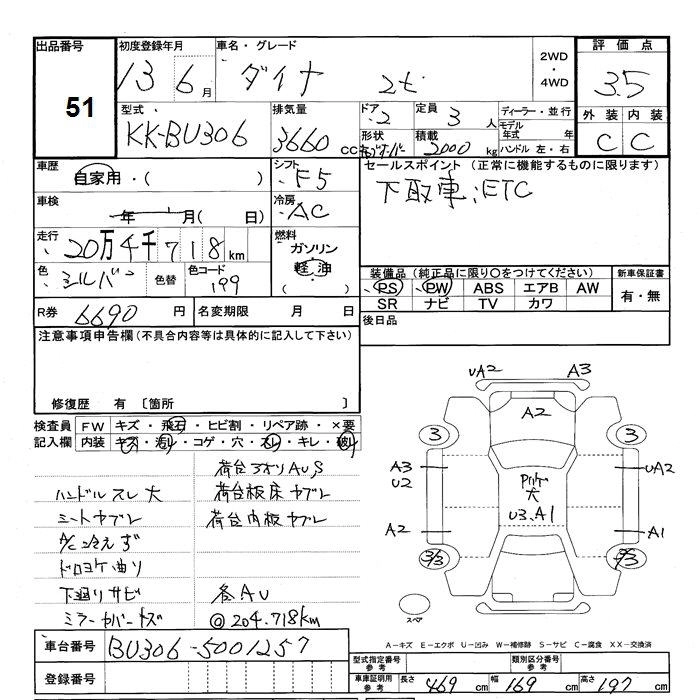 出品番号 51
初度登録年月 13 6月
車名・グレード ダイナ 2t
2WD・4WD
評価点 3.5
型式 KK-BU306
排気量 3660 cc
ドア 2
定員 3人
ディーラー・並行
モデル年式 年
ハンドル 左・右
形状
積載 2000 kg
外装 C
内装 C
車歴 自家用・( )
シフト F5
セールスポイント (正常に機能するものに限ります)
下取車;ETC
車検 年 月( 日)
冷房 AC
走行 20万4千718km
燃料 ガソリン 軽油 ( )
色 シルバー
色替
色コード 199
装備品 (純正品に限り〇をつけてください)
PS PW ABS エアB AW
SR ナビ TV カワ
新車保証書 有・無
R券 6690円
名変期限 月 日
後日品
注意事項申告欄(不具合内容等は具体的に記入して下さい)
修復歴 有 〔箇所 〕
検査員記入欄
FW キズ・飛石・ヒビ割・リペア跡・×要
内装 キズ・汚レ・コゲ・穴・スレ・キレ・破レ
荷台アオリAU,S
ハンドルスレ大 荷台板床ヤブレ
シートヤブレ 荷台内板ヤブレ
A/C冷えず
ドロヨケ曲り
下廻りサビ 各AU
ミラーカバーキズ @204.718km
UA2 A3
A2
3 3
A3 UA2
U2
大
U3.A1
A2 A1
3/3
スペア
A-キズ E-エクボ U-凹み W-補修跡 S-サビ C-腐食 XX-交換済
車台番号 BU306-5001257
登録番号
型式指定番号 参考
類別区分番号 参考
車庫証明用 参考 長さ 469 cm 幅 169 cm 高さ 197 cm